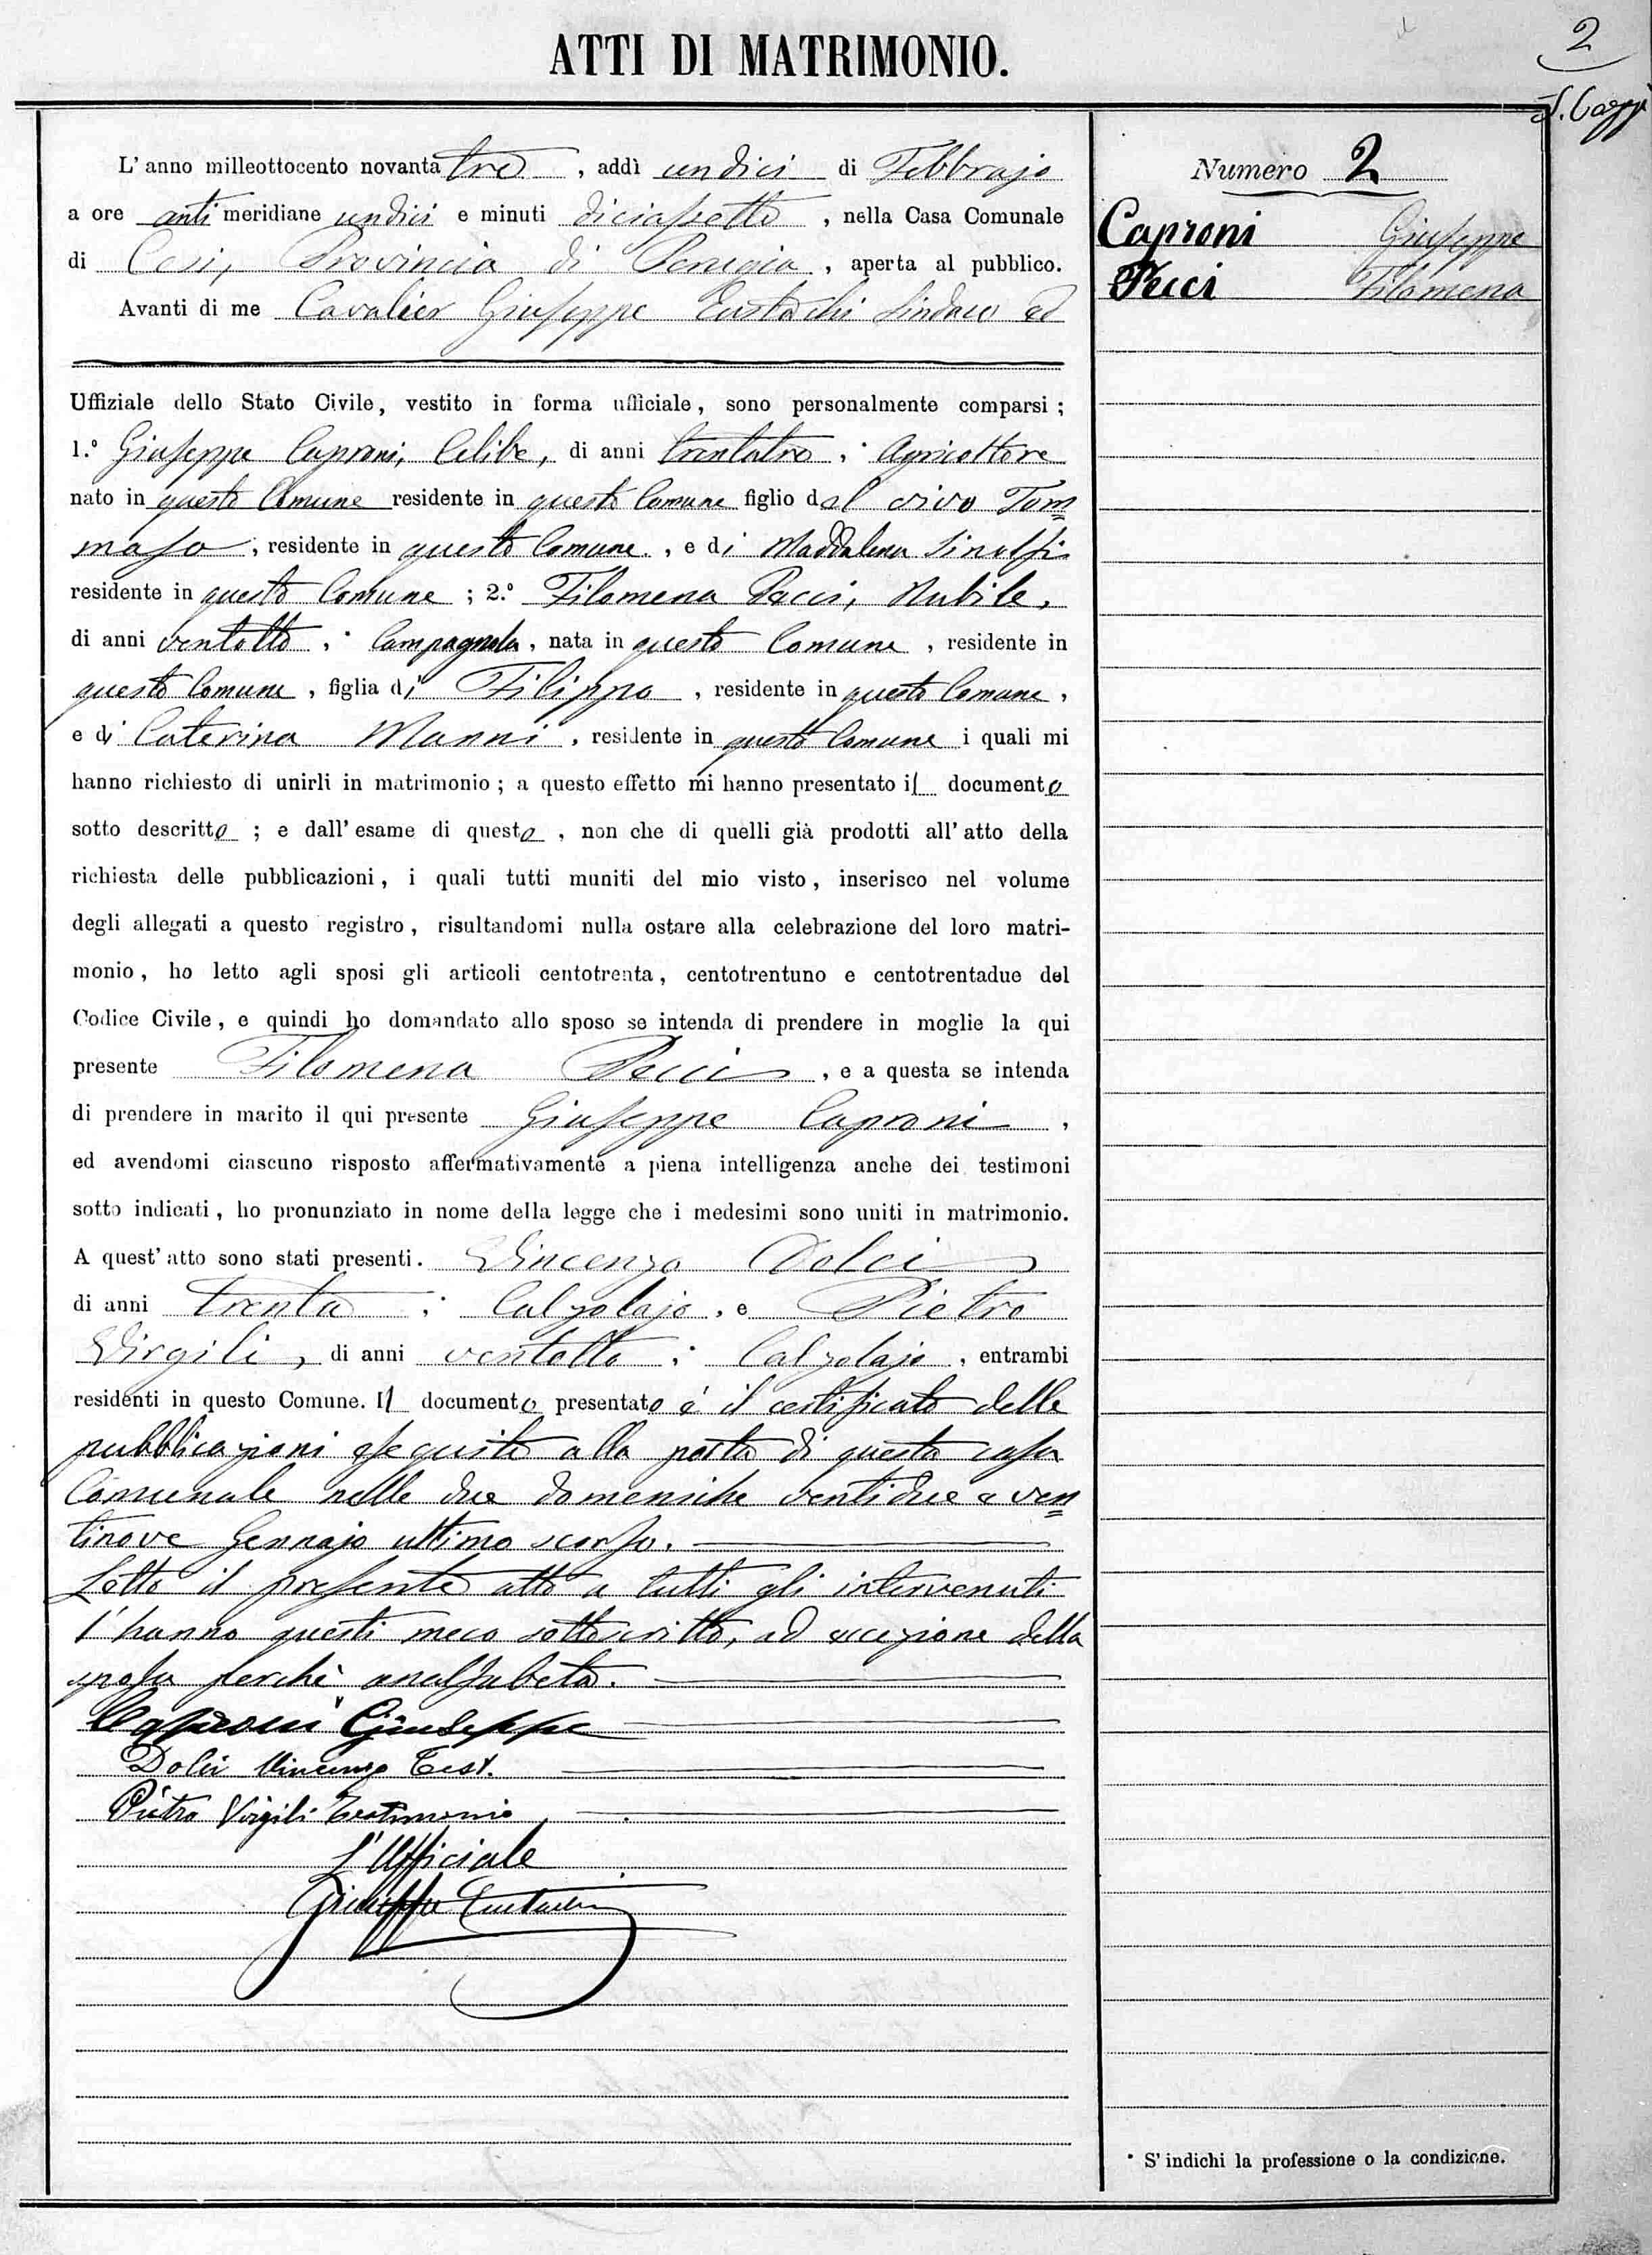 2
ATTI DI MATRIMONIO.
Numero 2
Caproni Giuseppe
Pecci Filomena
L'anno milleottocento novantatre, addì undici di Febbrajo
a ore antimeridiane undici e minuti diciassette, nella Casa Comunale
di Cesi, Provincia di Perugia, aperta al pubblico.
Avanti di me Cavalier Giuseppe Eustachi Sindaco ed
Uffiziale dello Stato Civile, vestito in forma ufficiale, sono personalmente comparsi;
1.° Giuseppe Caproni, Celibe, di anni trentatre, * Agricoltore
nato in questo Comune residente in questo Comune figlio del vivo Tom=
maso, residente in questo Comune, e di Maddalena Sinolfi
residente in questo Comune; 2.° Filomena Pecci, Nubile,
di anni ventotto, * Campagnola, nata in questo Comune, residente in
questo Comune, figlia di Filippo, residente in questo Comune,
e di Caterina Manni, residente in questo Comune i quali mi
hanno richiesto di unirli in matrimonio; a questo effetto mi hanno presentato il documento
sotto descritto; e dall'esame di questo, non che di quelli già prodotti all'atto della
richiesta delle pubblicazioni, i quali tutti muniti del mio visto, inserisco nel volume
degli allegati a questo registro, risultandomi nulla ostare alla celebrazione del loro matri-
monio, ho letto agli sposi gli articoli centotrenta, centotrentuno e centotrentadue del
Codice Civile, e quindi ho domandato allo sposo se intenda di prendere in moglie la qui
presente Filomena Pecci, e a questa se intenda
di prendere in marito il qui presente Giuseppe Caproni,
ed avendomi ciascuno risposto affermativamente a piena intelligenza anche dei testimoni
sotto indicati, ho pronunziato in nome della legge che i medesimi sono uniti in matrimonio.
A quest'atto sono stati presenti. Vincenzo Dolci
di anni trenta, * Calzolajo, e Pietro
Virgili, di anni ventotto, * Calzolajo, entrambi
residenti in questo Comune. Il documento presentato è il certificato delle
pubblicazioni eseguite alla porta di questa casa
Comunale nelle due domeniche ventidue e ven=
tinove Gennajo ultimo scorso.
Letto il presente atto a tutti gli intervenuti
l'hanno questi meco sottoscritto, ad eccezione della
sposa perchè analfabeta.
Caproni Giuseppe
Dolci Vincenzo Test.
Pietro Virgili Testimonio
L'Ufficiale
Giuseppe Eustachi
* S'indichi la professione o la condizione.